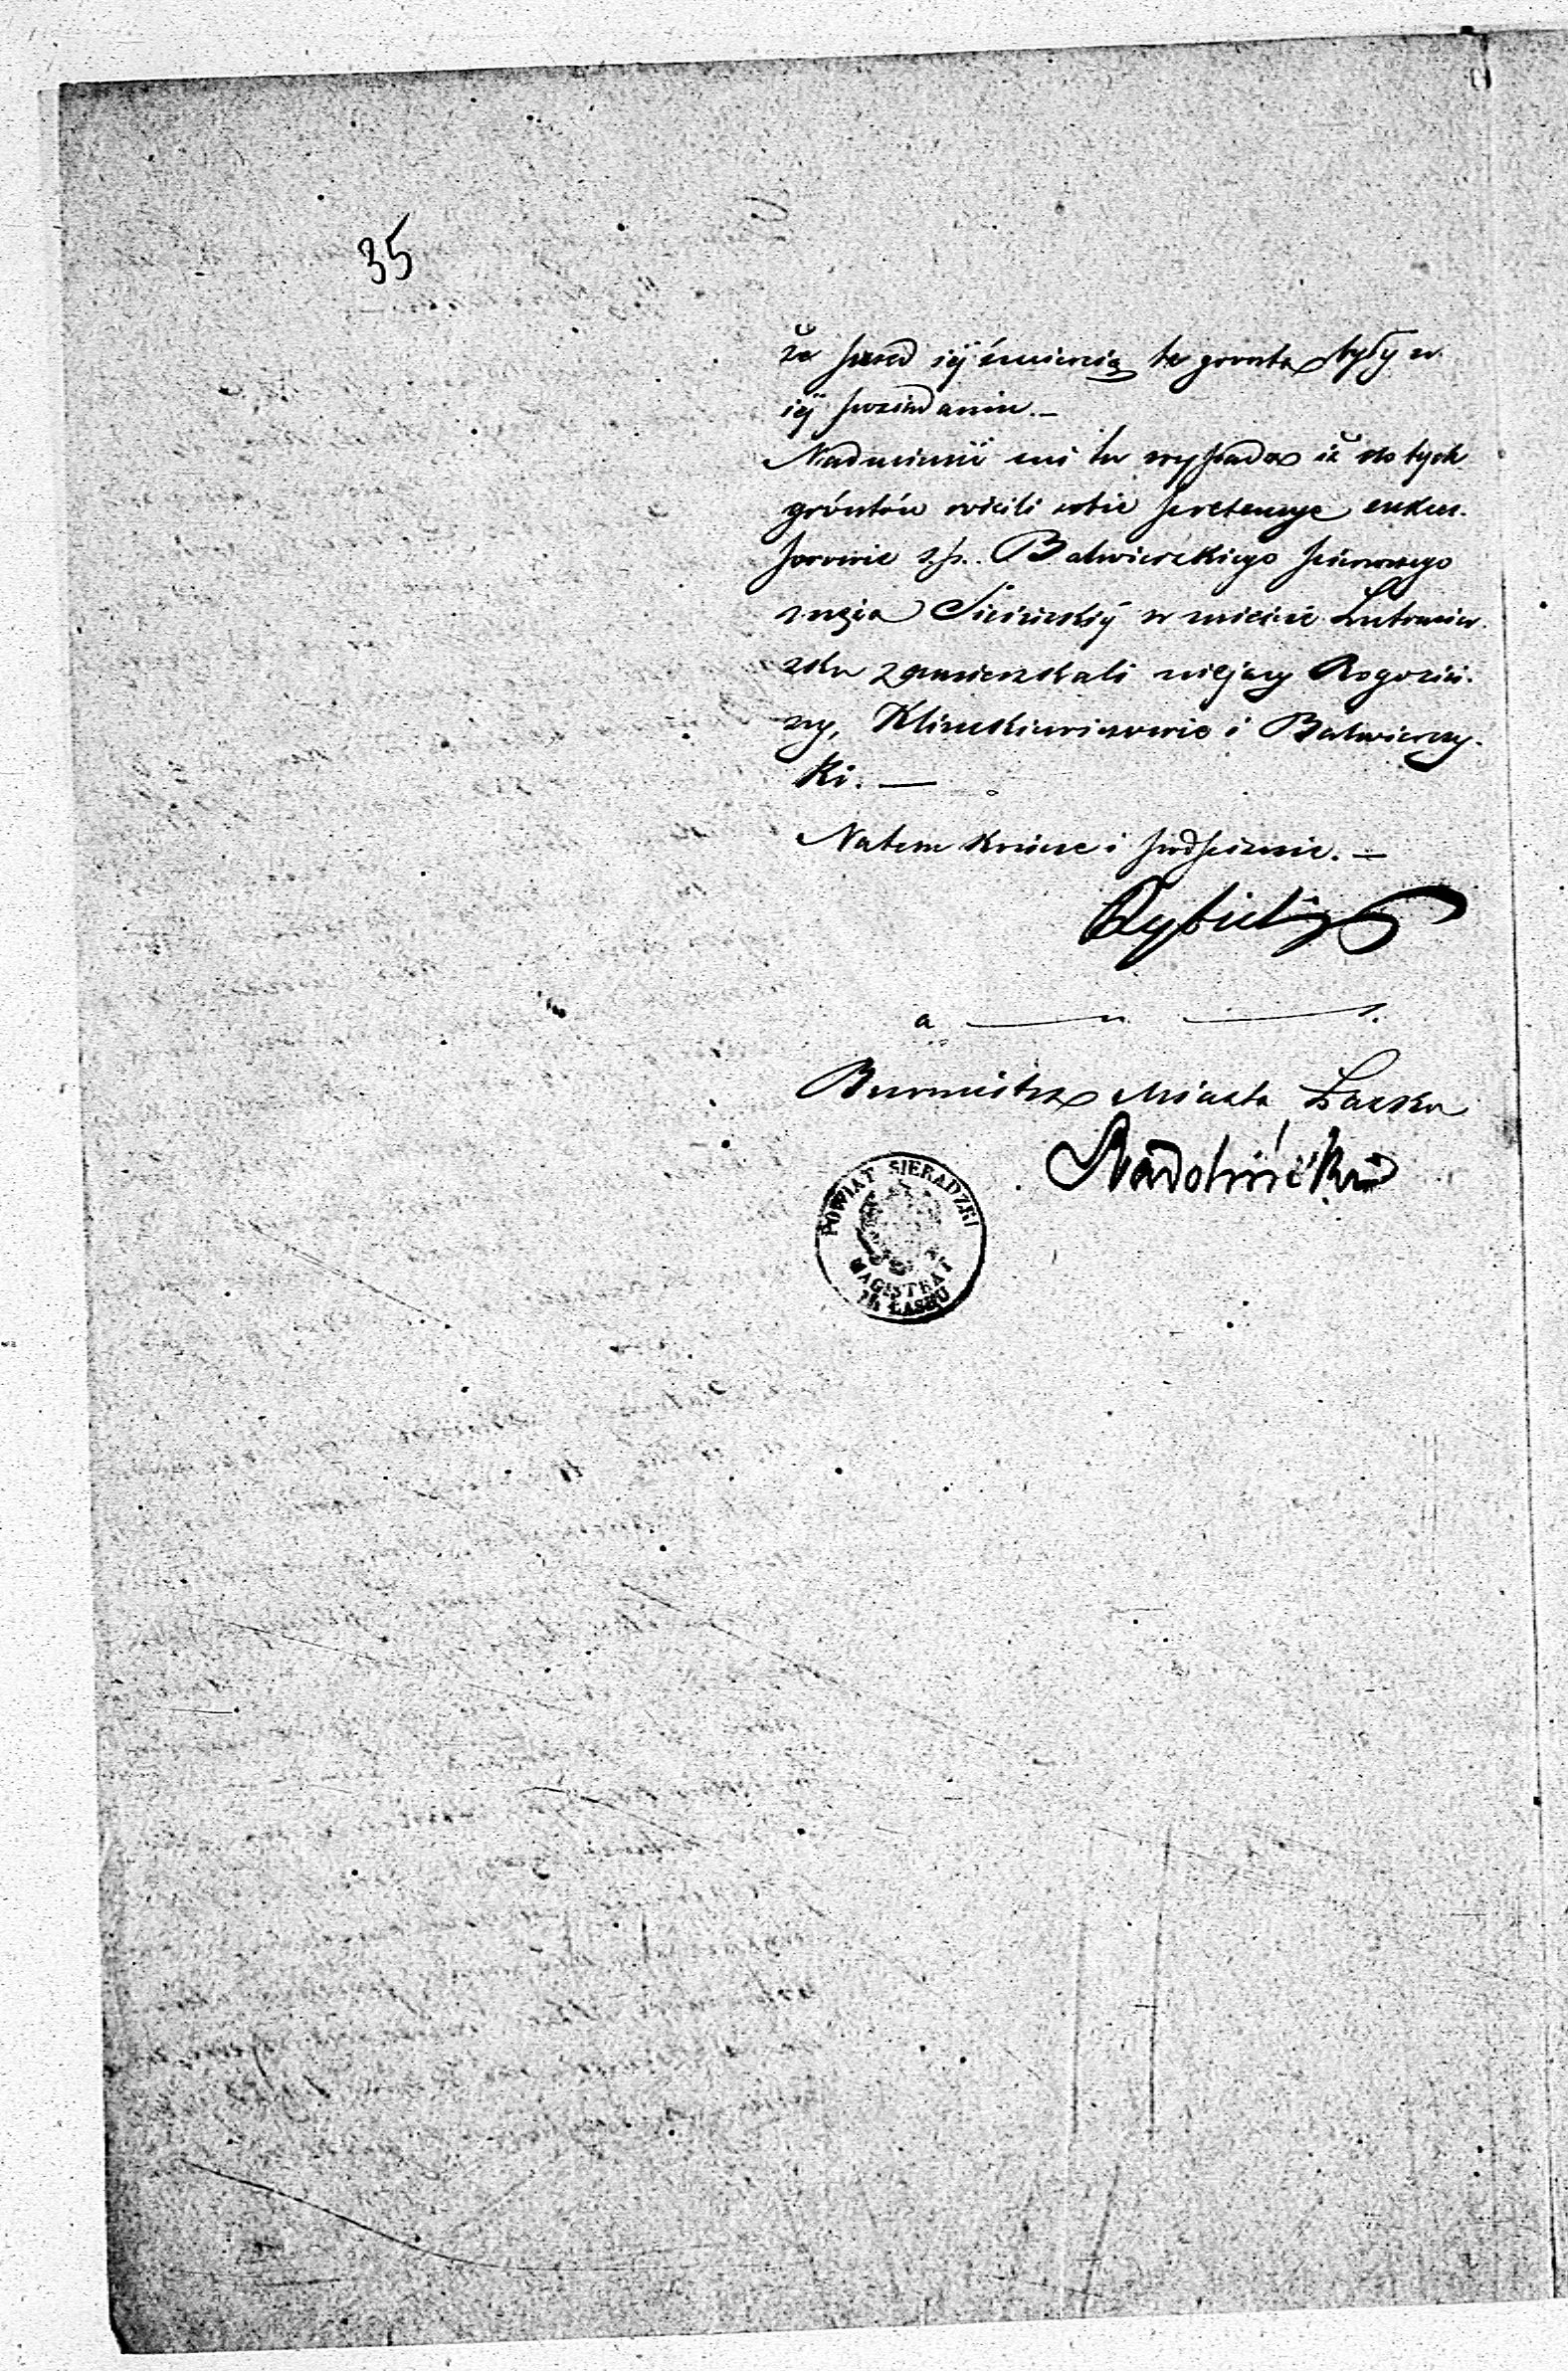 35
że przed iéj śmiercią te grunta były w
iéj posiadaniu.—
Nadmienić mi tu wypada iż do tych
gróntów rościli sobie pretensye sukce-
sorowie ś.p. Balwierskiego pierwszego
męża w mieście Lutomier-
sku zamieszkali niejacy Rogoziń-
scy, Klimkiewiczowie i Balwierzy-
ki.—
Natem kończe i podpisuie.—
Rybicki
a u s.
Burmistrz Miasta Łasku
Nadolnicki
POWIAT SIERADZKI
MAGISTRAT
M. ŁASKU